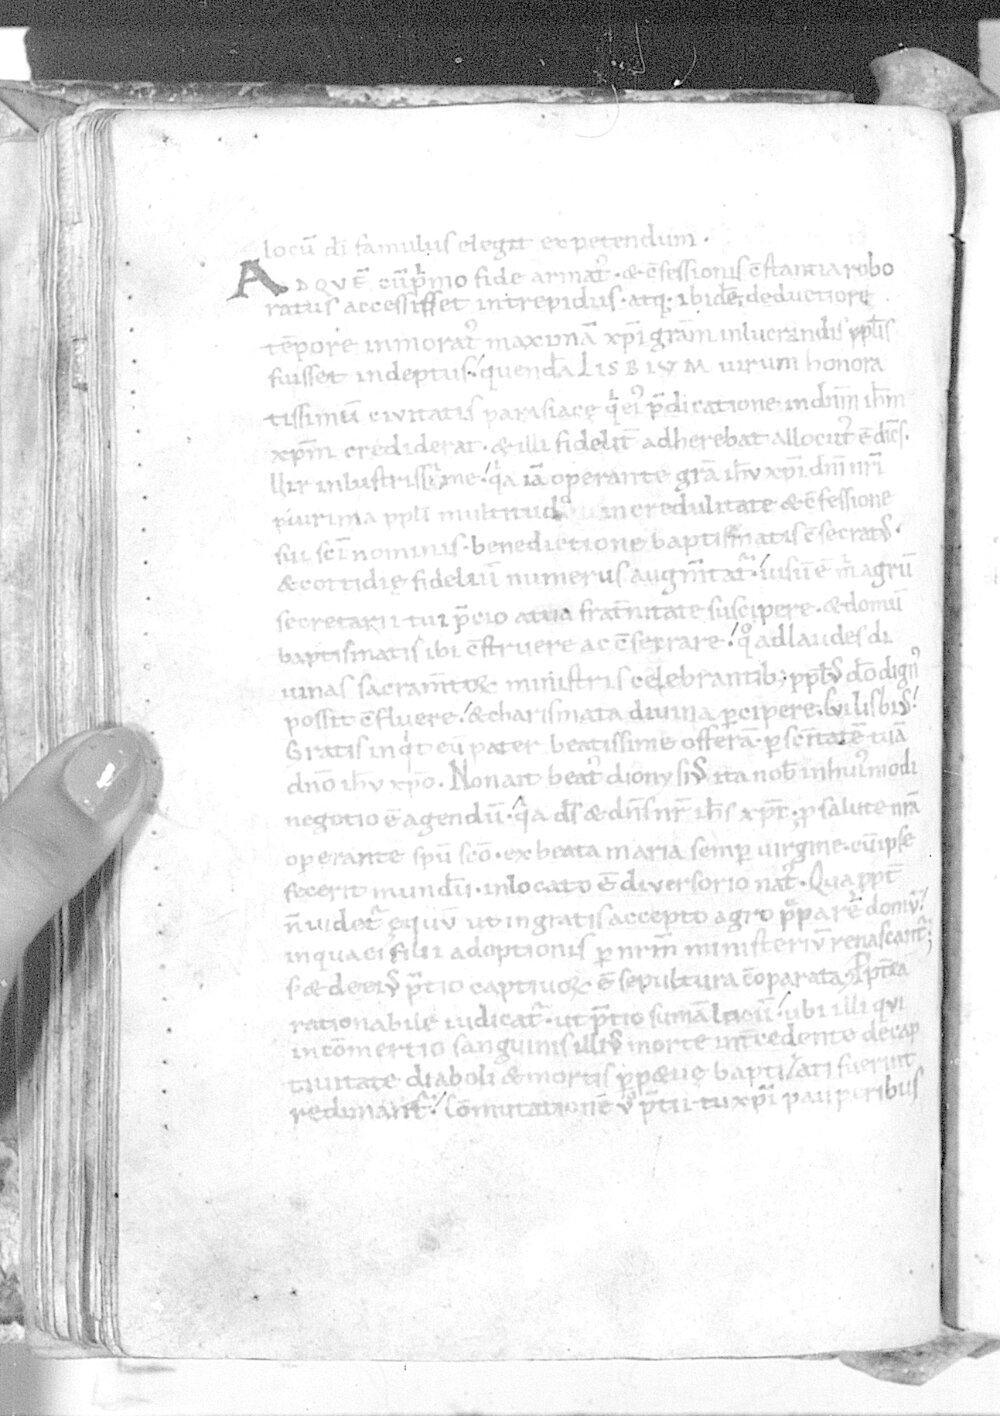 locū di famulus elegit expetendum.
ADQVĒ cū primo fide armat᷒. & c̄fessionis c̄stantia robo
ratus accessisset intrepidus. atq; ibidē deductiore
tēpore inmorat᷒ maximā xpi gr̄am inlucrandis ppl̄is
fuisset indeptus. quendā LISBIUM uirum honora
tissimum ciuitatis parasiacę qi ei᷒ p̄dicatione in dn̄m ihm̄
xpm̄ crediderat. & illi fidelit̄ adherebat allocut᷒ ē dic̄s.
Uir inlustrissime qa iā operante gr̄a ihū xpi dn̄i nr̄i
plurima ppl̄i multitudo incredulitate & c̄fessione
sui sc̄i nominis. benedictione baptismatis c̄secrat᷒.
& cottidię fideliū numerus augm̄tat᷒. uisū ē m̄ agrū
secretarii tui p̄cio a tua frat̄nitate suscipere. & domū
baptismatis ibi c̄struere ac c̄secrare qo ad laudes di
uinas sacram̄toꝝ ministris celebrantib; ppl̄s dō dign᷒
possit c̄fluere & charismata diuina p̄cipere. Cui lisbi᷒.
Gratis inqt eū pater beatissime offerā. p sc̄itatē tuā
dn̄o ihū xp̄o. Non ait beat᷒ dionysi᷒ ita nob̄ in hui᷒modi
negotio ē agendū. qa ds̄ & dn̄s nr̄ ihs̄ xpc̄. p salute nr̄a
operante sp̄u sc̄o. ex beata maria semp uirgine. cū ipse
fecerit mundū. in locato ē diuersorio nat᷒. Qua ppt̄
n̄ uidet᷒ ęquū ut in gratis accepto agro p̄parē domū
in qua ei filii adoptionis p nr̄m ministeriū renascant᷒;
S& de ei᷒ p̄tio captiuoꝝ ē sepultura c̄oparata. Ppt̄ea
rationabile iudicat᷒. ut p̄tio sumā locū ubi illi qui
in cōmertio sanguinis illi᷒ morte int̄cedente de cap
tiuitate diaboli & mortis pp&uę baptizati fuerint
redimant᷒. Cōmutationē u̅ p̄tii tu xp̄i pauperibus